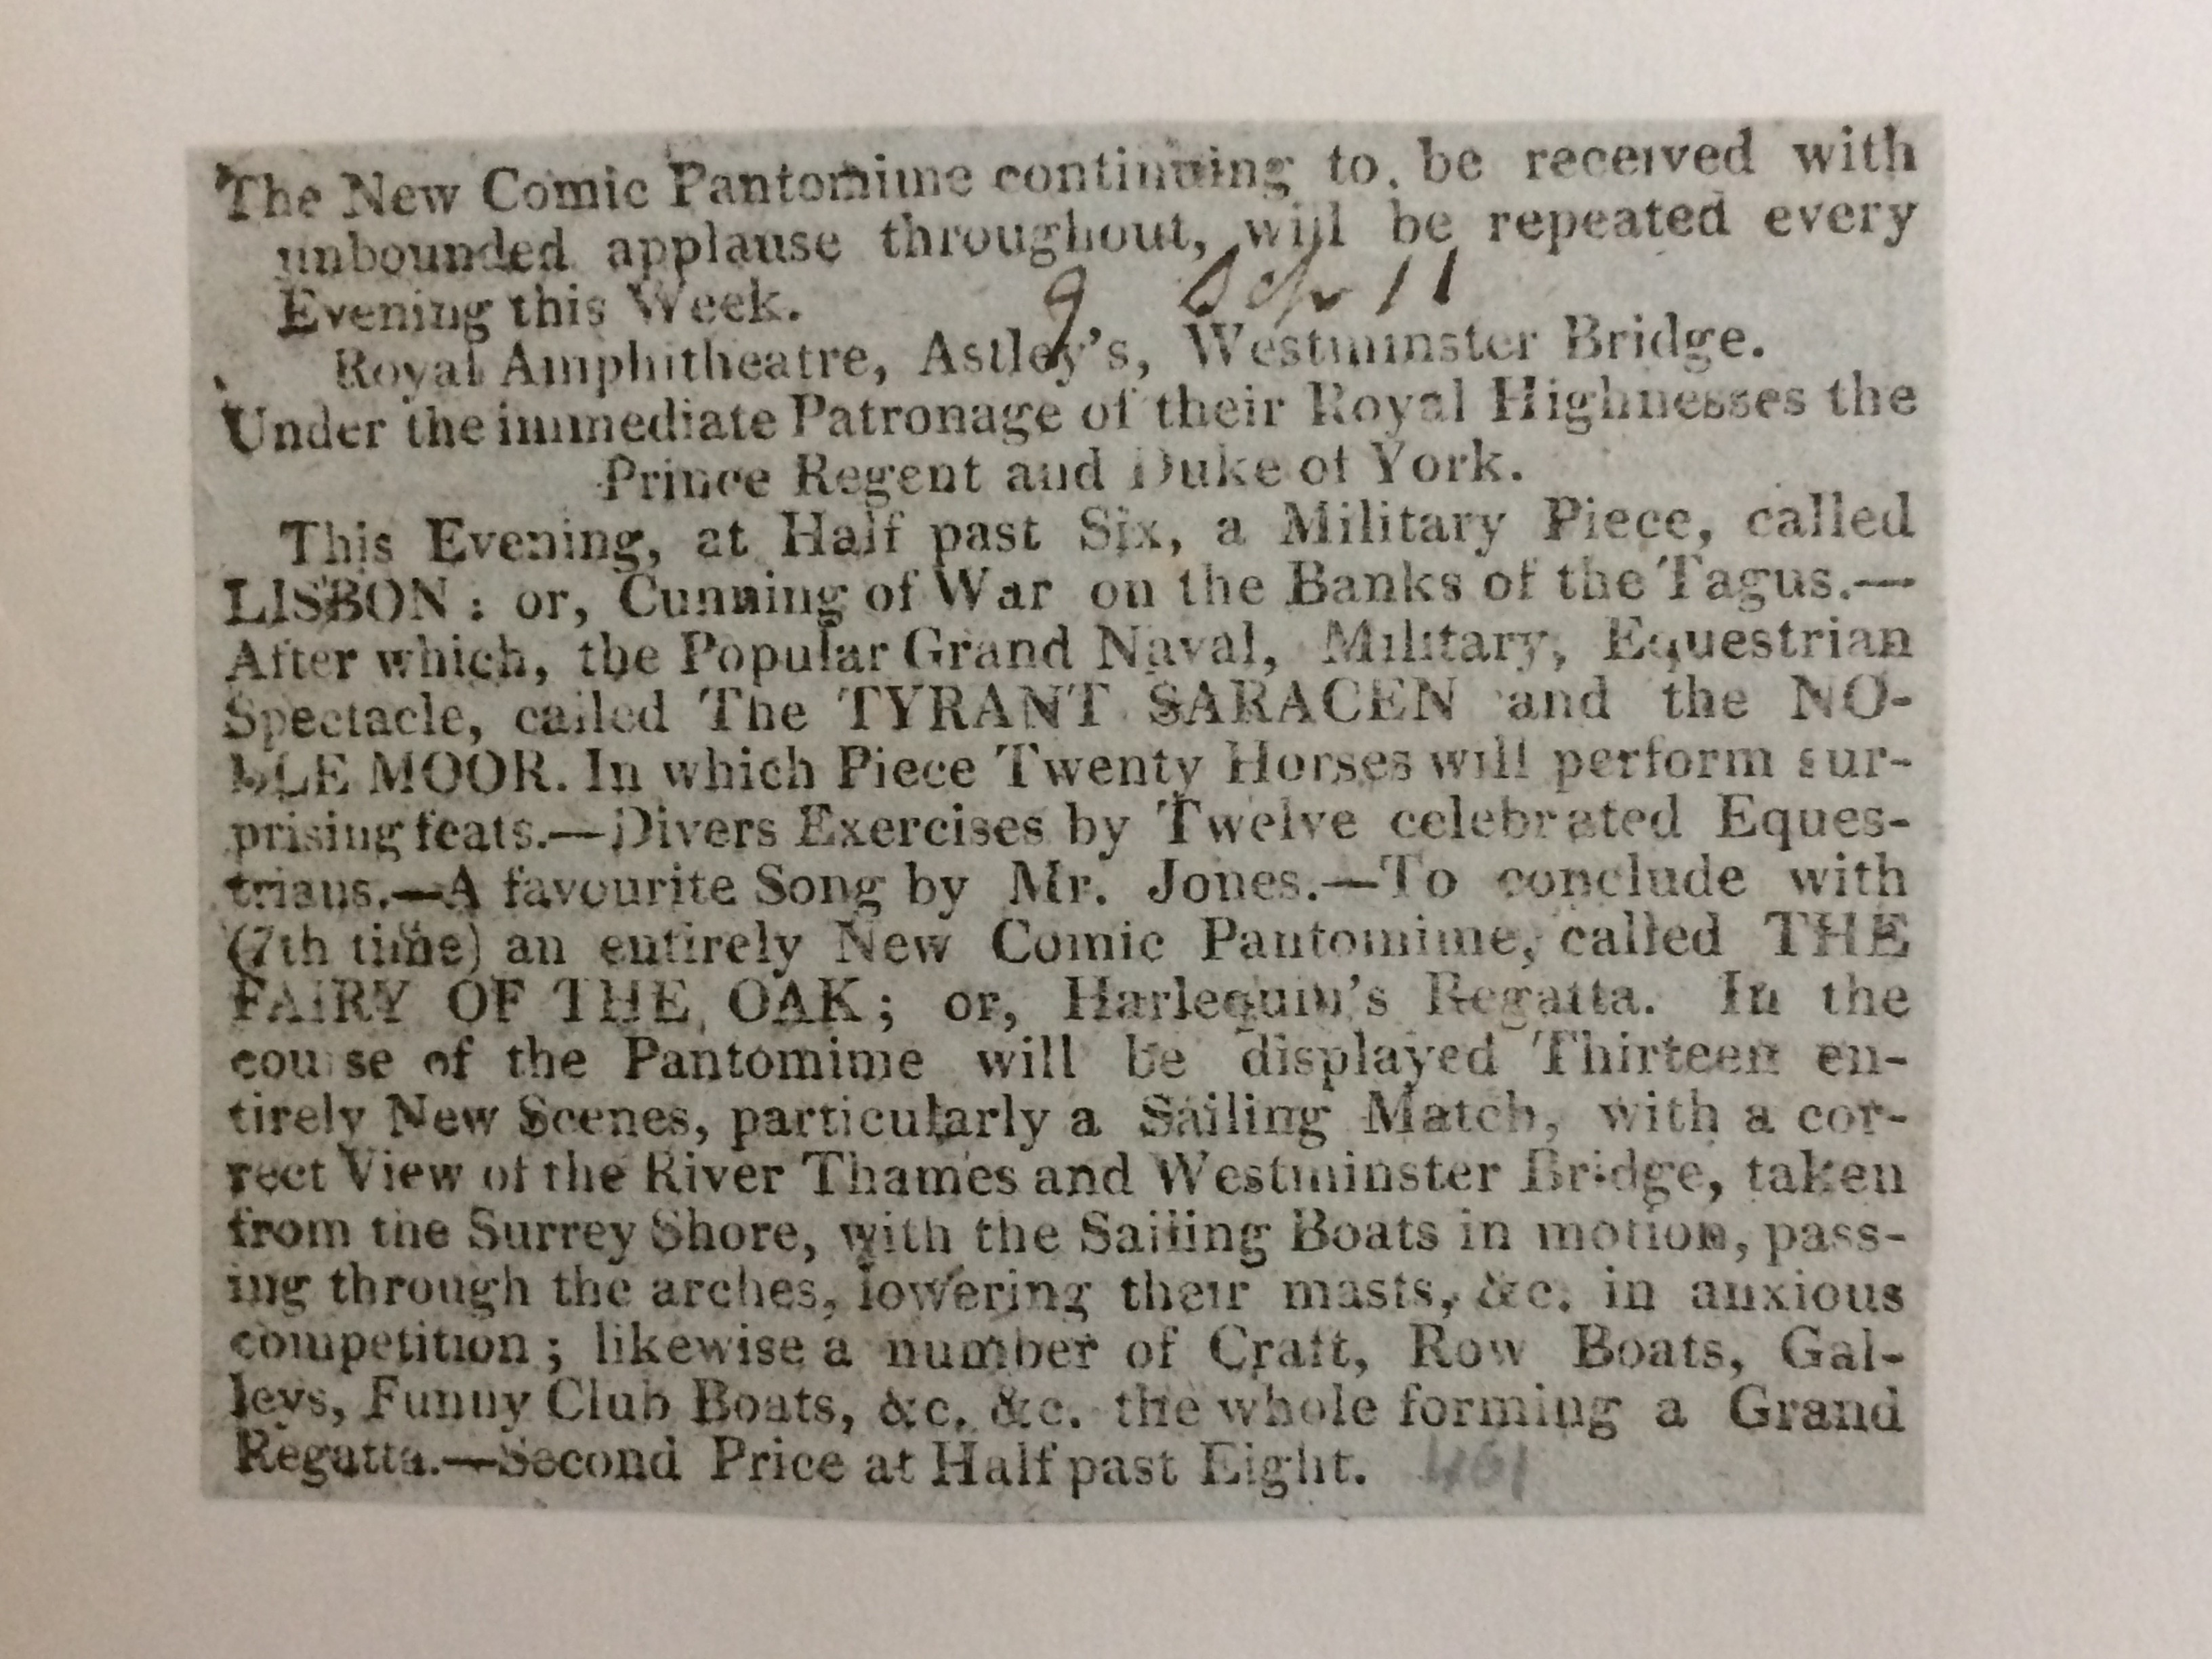 The New Comic Pantomime continuing to be received with
unbounded applause throughout, will be repeated every
Evening this Week.
9 Sep 11
Royal Amphitheatre, Astley's, Westminster Bridge.
Under the immediate Patronage of their Royal Highnesses the
Prince Regent and Duke of York.
This Evening, at Half past Six, a Military Piece, called
LISBON: or, Cunning of War on the Banks of the Tagus.—
After which, the Popular Grand Naval, Military, Equestrian
Spectacle, called The TYRANT SARACEN and the NO-
BLE MOOR. In which Piece Twenty Horses will perform sur-
prising feats.—Divers Exercises by Twelve celebrated Eques-
trians.—A favourite Song by Mr. Jones.—To conclude with
(7th time) an entirely New Comic Pantomime, called THE
FAIRY OF THE OAK; or, Harlequin's Regatta. In the
course of the Pantomime will be displayed Thirteen en-
tirely New Scenes, particularly a Sailing Match, with a cor-
rect View of the River Thames and Westminster Bridge, taken
from the Surrey Shore, with the Sailing Boats in motion, pass-
ing through the arches, lowering their masts, &c. in anxious
competition; likewise a number of Craft, Row Boats, Gal-
leys, Funny Club Boats, &c. &c. the whole forming a Grand
Regatta.—Second Price at Half past Eight.